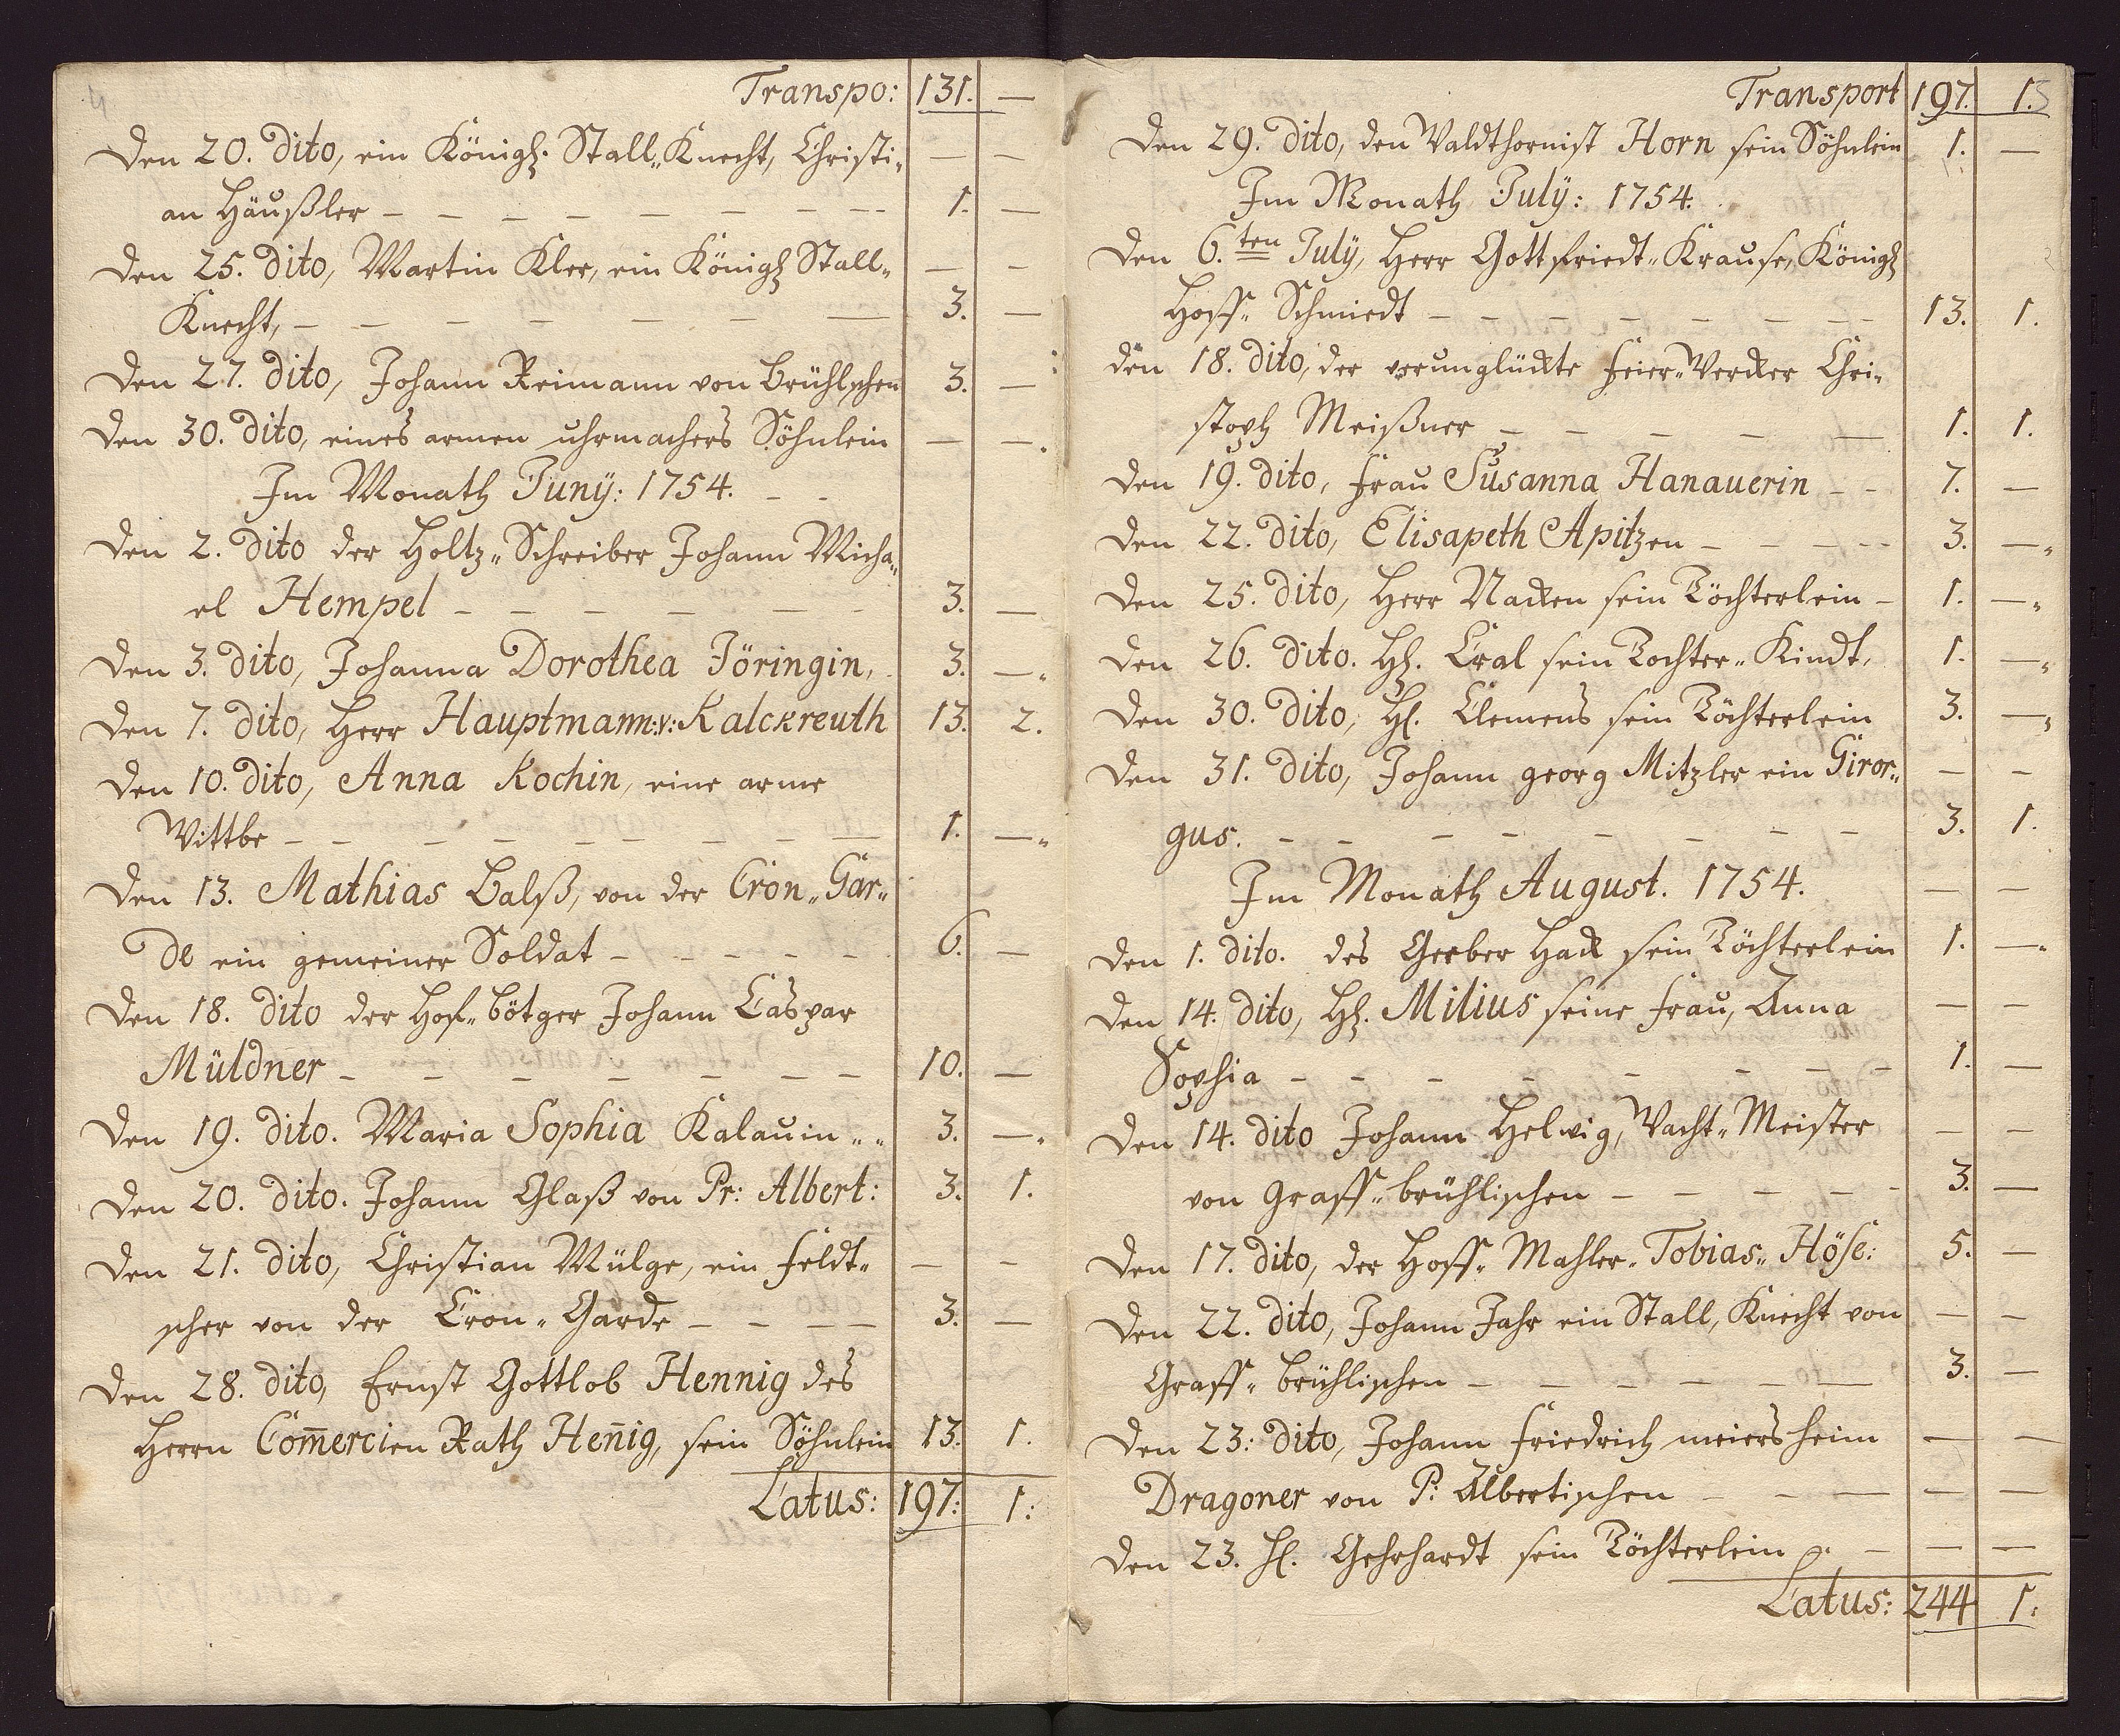 Transpo: 131. —
Den 20. dito, ein Königl: Stall„Knecht, Christi- — —
an Häußler — — — — — — — — — 1. —
Den 25. dito, Martin Klee, ein Königl Stall„ — —
Knecht, — — — — — — — 3. —
Den 27. dito, Johann Reimann von Brühlschen 3. —
Den 30. dito, eines armen uhrmachers Söhnlein — —
Im Monath Junÿ: 1754. — —
Den 2. dito der Holtz„Schreiber Johann Micha„
el Hempel — — — — — — — 3. —
Den 3. dito, Johanna Dorothea Jöringin, 3. —
Den 7. dito, Herr Hauptmann:v: Kalckreuth 13. 2.
Den 10. dito, Anna Kochin, eine arme
Wittbe — — — — — — — — — 1. —
Den 13. Mathias Balß, von der Cron„Gar„
de ein gemeiner Soldat — — — — — 6. —
Den 18. dito der Hof„bötger Johann Caspar
Müldner — — — — — — — — 10. —
Den 19. dito. Maria Sophia Kalauin „ „ 3. —
Den 20. dito. Johann Glaß von Pr: Albert: 3. 1.
Den 21. dito, Christian Mülge, ein Feldt„ — —
scher von der Cron„Garde — — — — 3. —
Den 28. dito, Ernst Gottlob Hennig des
Herrn Com̄ercien Rath Hen̄ig, sein Söhnlein 13. 1.
Latus: 197: 1:
Transport 197. 1. 5
Den 29. dito, den Waldthornist Horn sein Söhnlein 1. —
Im Monath Julÿ: 1754.
Den 6.ten Julÿ, Herr Gottfriedt„Krause, Königl
Hoff„Schmiedt — — — — — — — — 13. 1.
den 18. dito, der verunglückte Feier„Wercker Chri-
stoph Meißner — — — — — 1. 1.
Den 19. dito, Frau Susanna Hanauerin — — 7. —
Den 22. dito, Elisapeth Apitzen — — — — 3. —
Den 25. dito, Herr Nacken sein Töchterlein — 1. —
Den 26. dito. Hh. Cral sein Tochter„Kindt, 1. —
Den 30. dito, Hl. Clemens sein Töchterlein 3. —
Den 31. dito, Johann georg Mitzler ein Giror„ — —
gus. — — — — — — — — 3. 1.
Im Monath August. 1754. — —
Den 1. dito. des Gerber Hack sein Töchterlein 1. —
Den 14. dito, Hh. Milius seine Frau, Anna — —
Sophia — — — — — — — — 1. —
Den 14. dito Johann Helwig, Wacht„Meister — —
von Graff„brühlischen — — — — — 3. —
Den 17. dito, der Hoff„Mahler„Tobias„Höse: 5. —
Den 22. dito, Johann Jahr ein Stall„Knecht von — —
Graff„brühlischen — — — — — — 3. —
Den 23: dito, Johann Friedrich meiersheim — —
Dragoner von P: Albertischen — — — — —
Den 23. Hl. Gehrhardt sein Töchterlein — — —
Latus: 244 1: